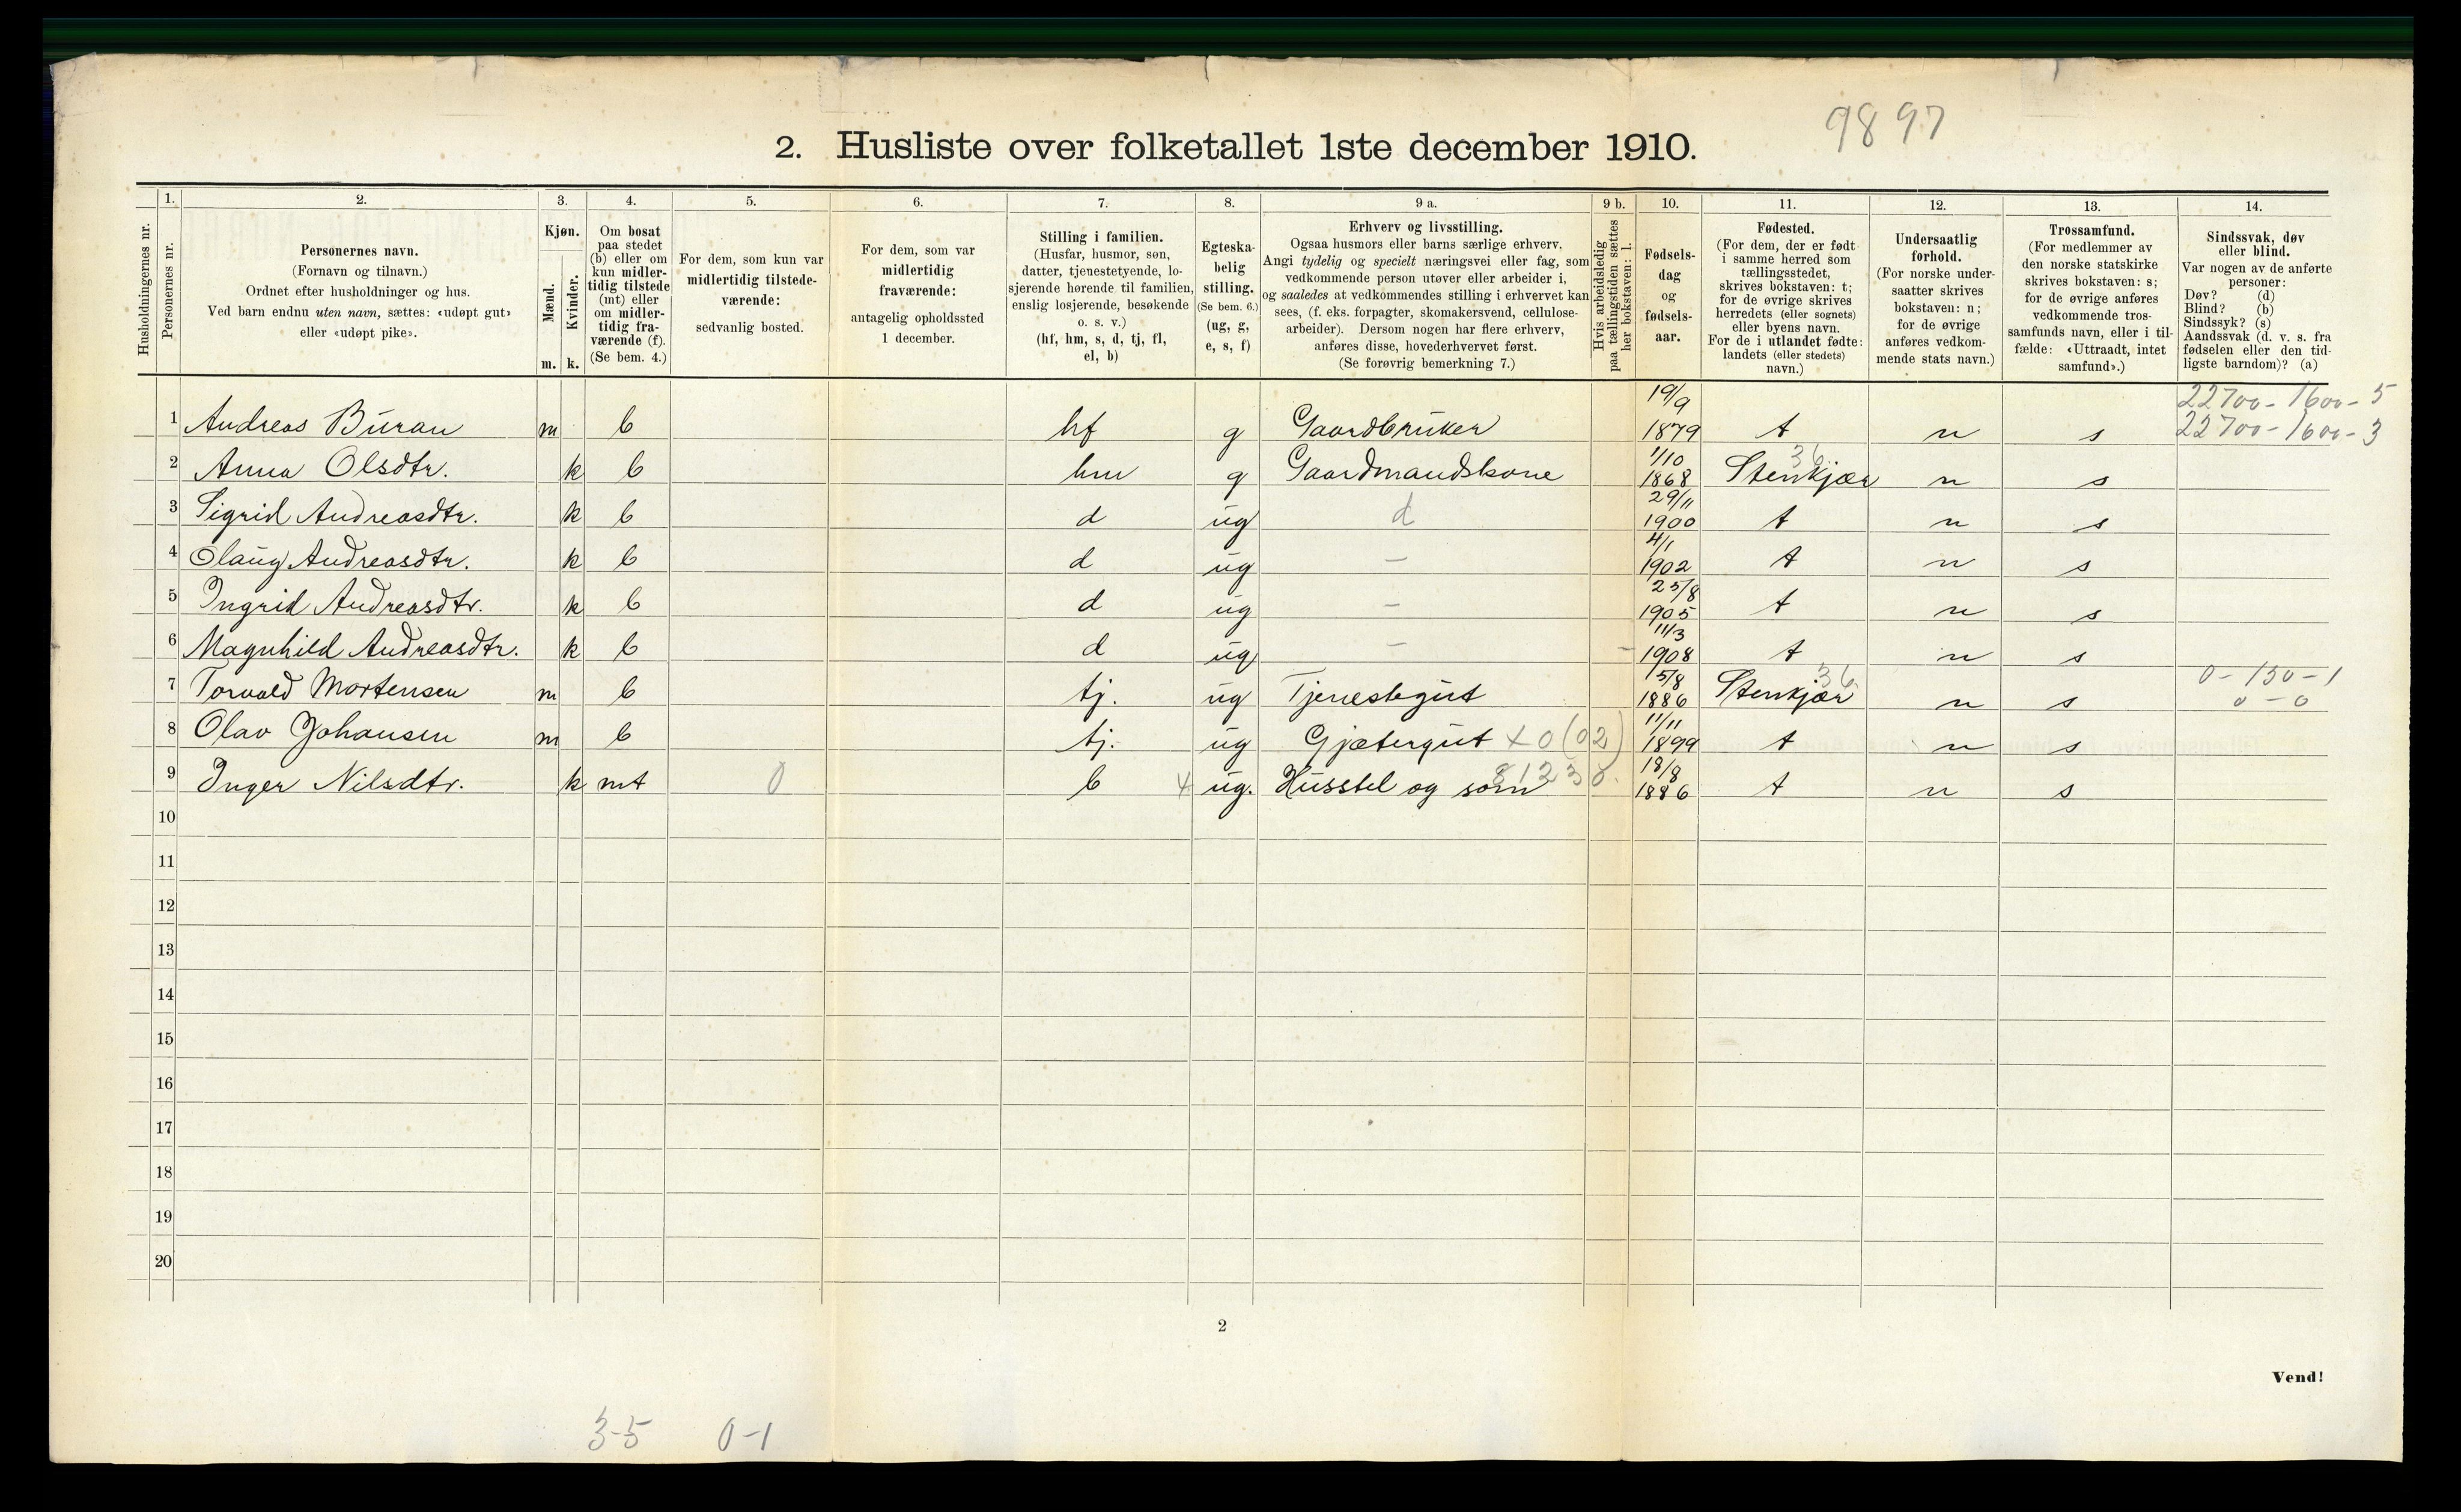 9897
2. Husliste over folketallet 1ste december 1910.
Husholdningernes nr.
1.
Personernes nr.
2.
Personernes navn.
(Fornavn og tilnavn.)
Ordnet efter husholdninger og hus.
Ved barn endnu uten navn, sættes: «udøpt gut»
eller «udøpt pike».
3.
Kjøn.
Mænd.
m.
Kvinder.
k.
4.
Om bosat
paa stedet
(b) eller om
kun midler-
tidig tilstede
(mt) eller
om midler-
tidig fra-
værende (f).
(Se bem. 4.)
5.
For dem, som kun var
midlertidig tilstede-
værende:
sedvanlig bosted.
6.
For dem, som var
midlertidig
fraværende:
antagelig opholdssted
1 december.
7.
Stilling i familien.
(Husfar, husmor, søn,
datter, tjenestetyende, lo-
sjerende hørende til familien,
enslig losjerende, besøkende
o. s. v.)
(hf, hm, s, d, tj, fl,
el, b)
8.
Egteska-
belig
stilling.
(Se bem. 6.)
(ug, g,
e, s, f)
9 a.
Erhverv og livsstilling.
Ogsaa husmors eller barns særlige erhverv.
Angi tydelig og specielt næringsvei eller fag, som
vedkommende person utøver eller arbeider i,
og saaledes at vedkommendes stilling i erhvervet kan
sees, (f. eks. forpagter, skomakersvend, cellulose-
arbeider). Dersom nogen har flere erhverv,
anføres disse, hovederhvervet først.
(Se forøvrig bemerkning 7.)
9 b.
Hvis arbeidsledig
paa tællingstiden sættes
her bokstaven: l.
10.
Fødsels-
dag
og
fødsels-
aar.
11.
Fødested.
(For dem, der er født
i samme herred som
tællingsstedet,
skrives bokstaven: t;
for de øvrige skrives
herredets (eller sognets)
eller byens navn.
For de i utlandet fødte:
landets (eller stedets)
navn.)
12.
Undersaatlig
forhold.
(For norske under-
saatter skrives
bokstaven: n;
for de øvrige
anføres vedkom-
mende stats navn.)
13.
Trossamfund.
(For medlemmer av
den norske statskirke
skrives bokstaven: s;
for de øvrige anføres
vedkommende tros-
samfunds navn, eller i til-
fælde: «Uttraadt, intet
samfund».)
14.
Sindssvak, døv
eller blind.
Var nogen av de anførte
personer:
Døv? (d)
Blind? (b)
Sindssyk? (s)
Aandssvak (d. v. s. fra
fødselen eller den tid-
ligste barndom)? (a)
1 Andreas Buran m b hf g Gaardbruker 19/9 1879 t n s 22700-1600-5
22700-1600-3
2 Anna Olsdtr. k b hm g Gaardmandskone 1/10 1868 Stenkjær 36 n s
3 Sigrid Andreasdtr. k b d ug d 29/11 1900 t n s
4 Olaug Andreasdtr. k b d ug - 4/1 1902 t n s
5 Ingrid Andreasdtr. k b d ug - 25/8 1905 t n s
6 Magnhild Andreasdtr. k b d ug - - 11/3 1908 t n s
7 Torvald Mortensen m b tj. ug Tjenestegut 15/8 1886 Stenkjær 36 n s 0-150-1
0-0
8 Olav Johansen m b tj. ug Gjætergut x0(02) 11/11 1899 t n s
9 Inger Nilsdtr. k mt 0 b x ug. Husstel og søm 18/8 1886 t n s
10
11
12
13
14
15
16
17
18
19
20
2
Vend!
3-5 0-1